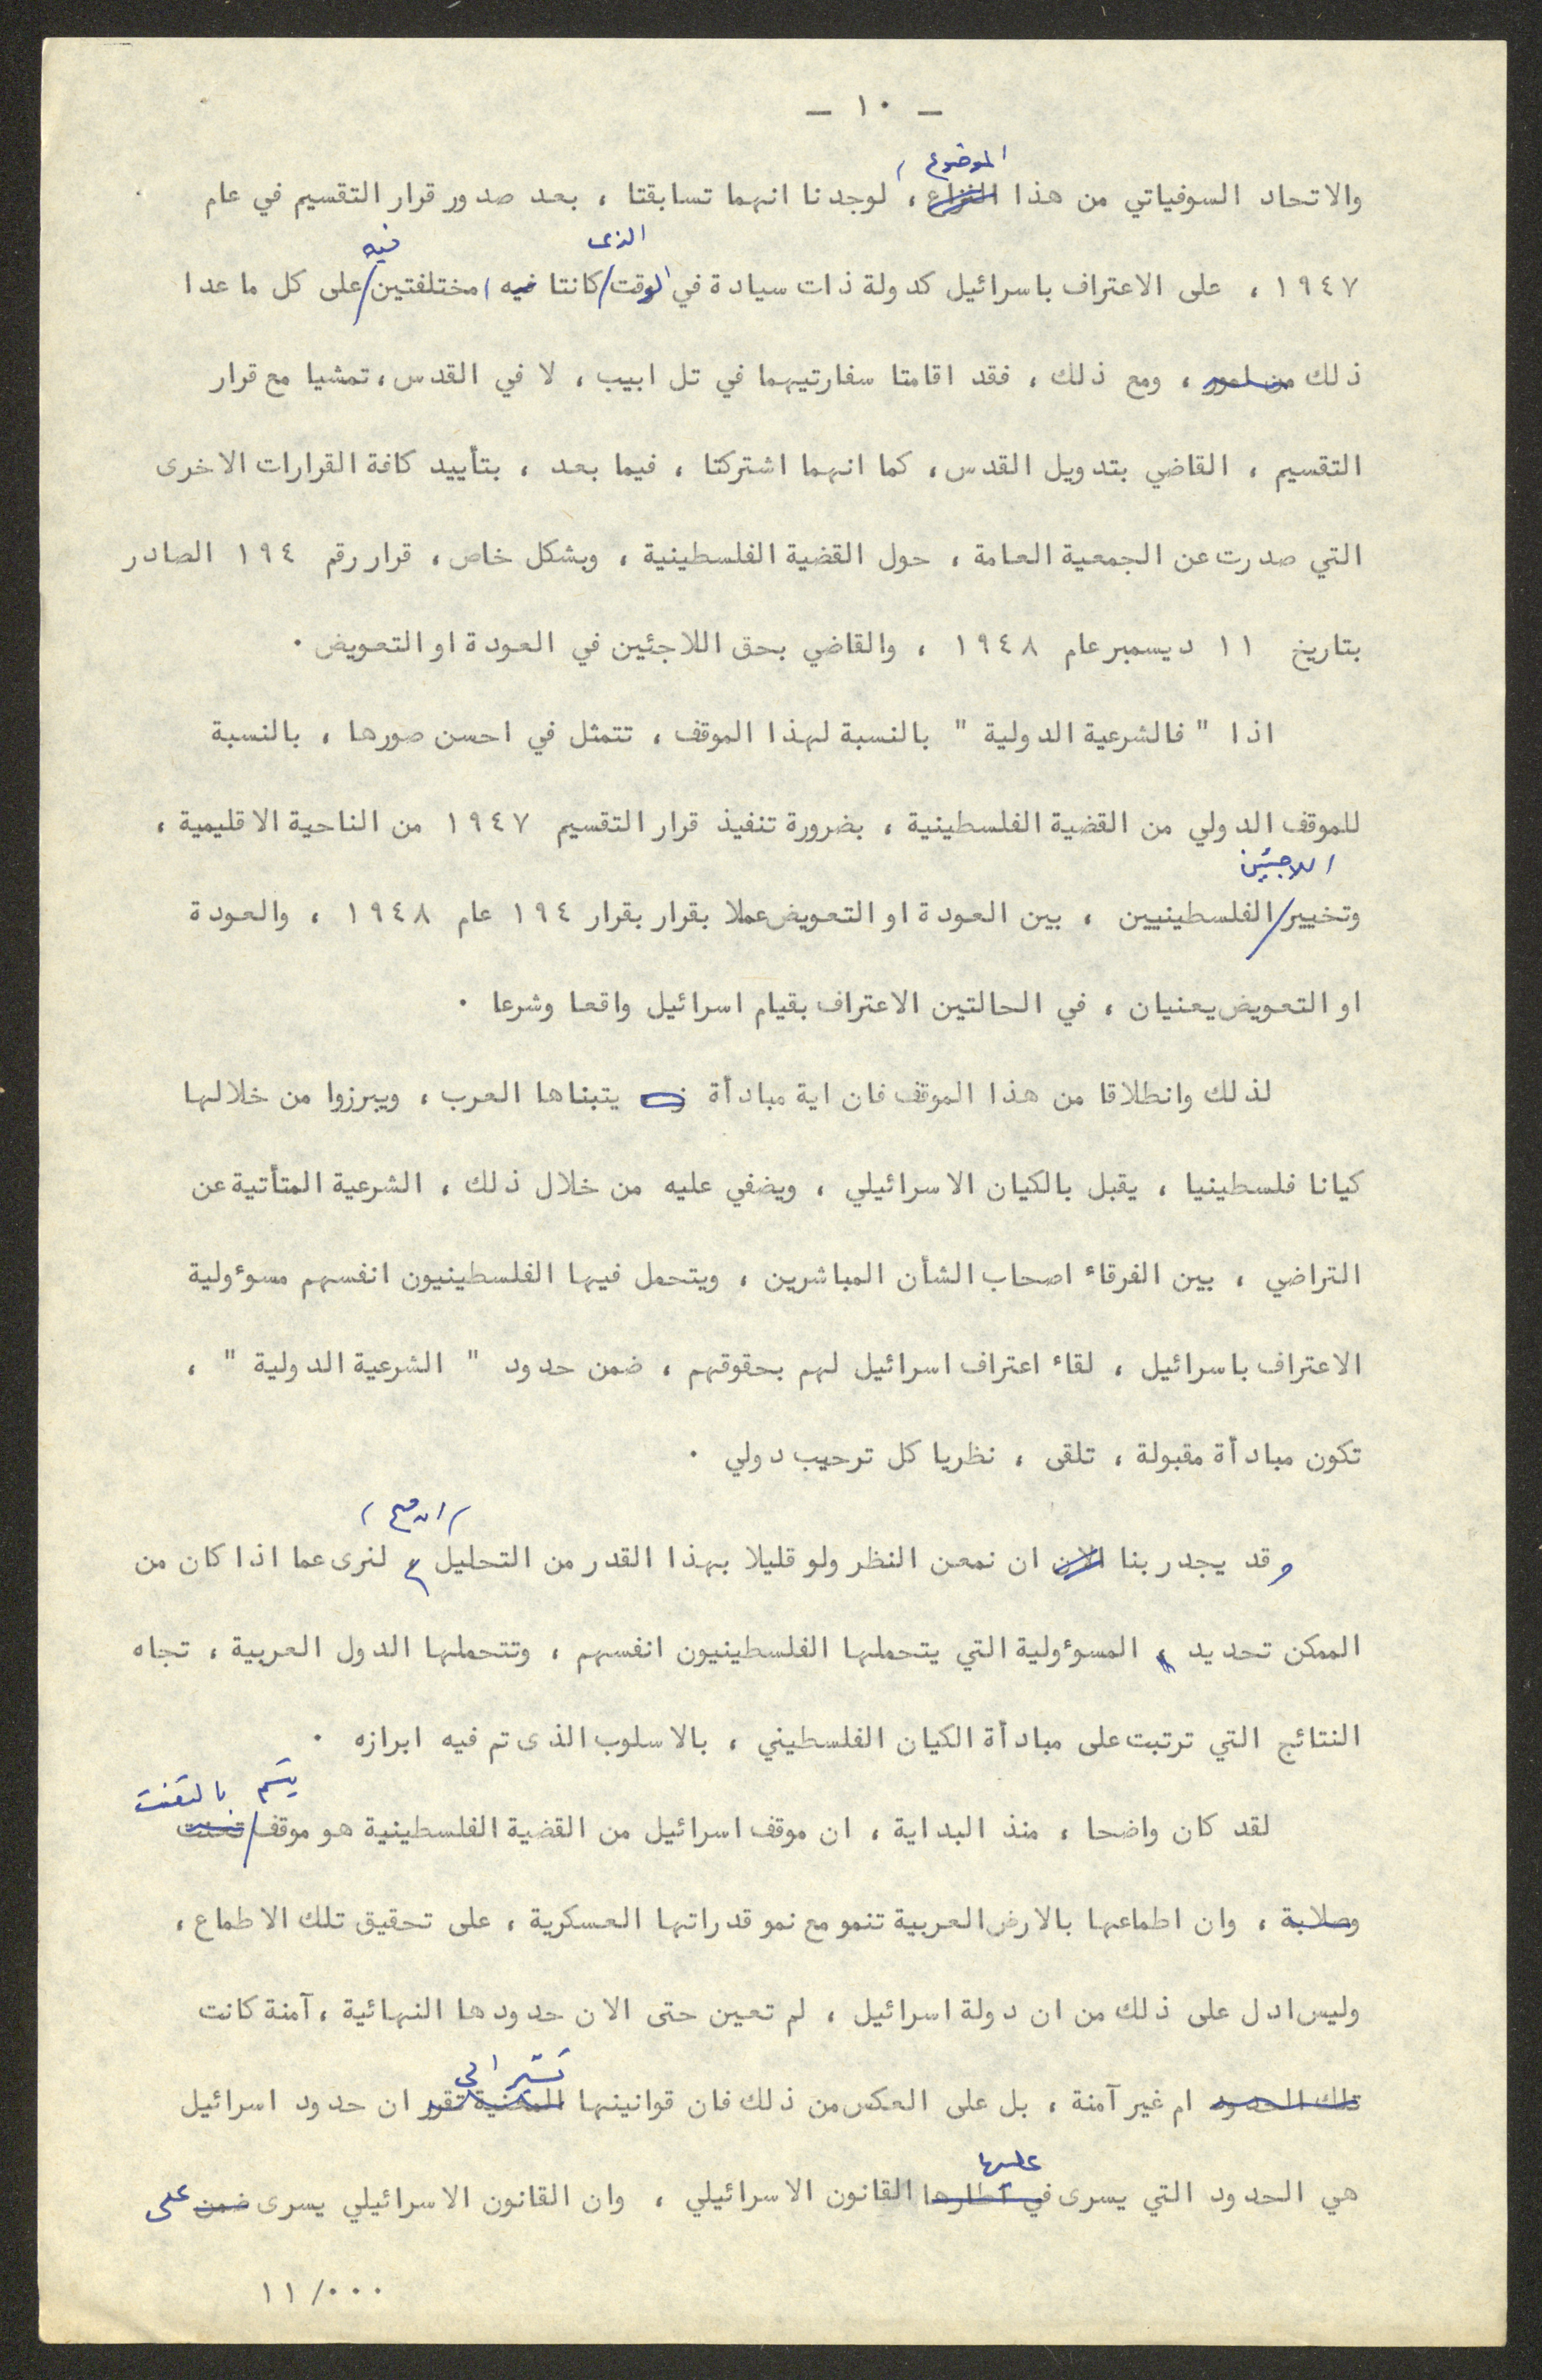 – ١٠ –
الموضوع ،
والاتحاد السوفياتي من هذا النزاع ، لوجدنا انهما تسابقتا ، بعد صدور قرار التقسيم في عام
الذى فيه
١٩٤٧ ، على الاعتراف باسرائيل كدولة ذات سيادة في الوقت / كانتا فيه مختلفتين / على كل ما عدا
ذلك من امور ، ومع ذلك ، فقد اقامتا سفارتيهما في تل ابيب ، لا في القدس ، تمشيا مع قرار
التقسيم ، القاضي بتدويل القدس ، كما انهما اشتركتا ، فيما بعد ، بتأييد كافة القرارات الاخرى
التي صدرت عن الجمعية العامة ، حول القضية الفلسطينية ، وبشكل خاص ، قرار رقم ١٩٤ الصادر
بتاريخ ١١ ديسمبر عام ١٩٤٨ ، والقاضي بحق اللاجئين في العودة او التعويض ٠
اذا " فالشرعية الدولية " بالنسبة لهذا الموقف ، تتمثل في احسن صورها ، بالنسبة
للموقف الدولي من القضية الفلسطينية ، بضرورة تنفيذ قرار التقسيم ١٩٤٧ من الناحية الاقليمية ،
اللاجئين
وتخيير / الفلسطينيين ، بين العودة او التعويض عملا بقرار بقرار ١٩٤ عام ١٩٤٨ ، والعودة
او التعويض يعنيان ، في الحالتين الاعتراف بقيام اسرائيل واقعا وشرعا ٠
لذلك وانطلاقا من هذا الموقف فان اية مبادأة يتبناها العرب ، ويبرزوا من خلالها
كيانا فلسطينيا ، يقبل بالكيان الاسرائيلي ، ويضفي عليه من خلال ذلك ، الشرعية المتأتية عن
التراضي ، بين الفرقاء اصحاب الشأن المباشرين ، ويتحمل فيها الفلسطينيون انفسهم مسوءولية
الاعتراف باسرائيل ، لقاء اعتراف اسرائيل لهم بحقوقهم ، ضمن حدود " الشرعية الدولية " ،
تكون مبادأة مقبولة ، تلقى ، نظريا كل ترحيب دولي ٠
وقد يجدر بنا الان ان نمعن النظر ولو قليلا بهذا القدر من التحليل لنرى عما اذا كان من
الممكن تحديد المسوءولية التي يتحملها الفلسطينيون انفسهم ، وتتحملها الدول العربية ، تجاه
النتائج التي ترتبت على مبادأة الكيان الفلسطيني ، بالاسلوب الذى تم فيه ابرازه ٠
يتسم بالتعنت
لقد كان واضحا ، منذ البداية ، ان موقف اسرائيل من القضية الفلسطينية هو موقف / تعنت
وصلابة ، وان اطماعها بالارض العربية تنمو مع نمو قدراتها العسكرية ، على تحقيق تلك الاطماع ،
وليس ادل على ذلك من ان دولة اسرائيل ، لم تعين حتى الان حدودها النهائية ، آمنة كانت
تشير الى
تلك الحدود ام غير آمنة ، بل على العكس من ذلك فان قوانينها المدنية تقرر ان حدود اسرائيل
عليها
هي الحدود التي يسرى في اطارها القانون الاسرائيلي ، وان القانون الاسرائيلي يسرى ضمن على
١١/٠٠٠